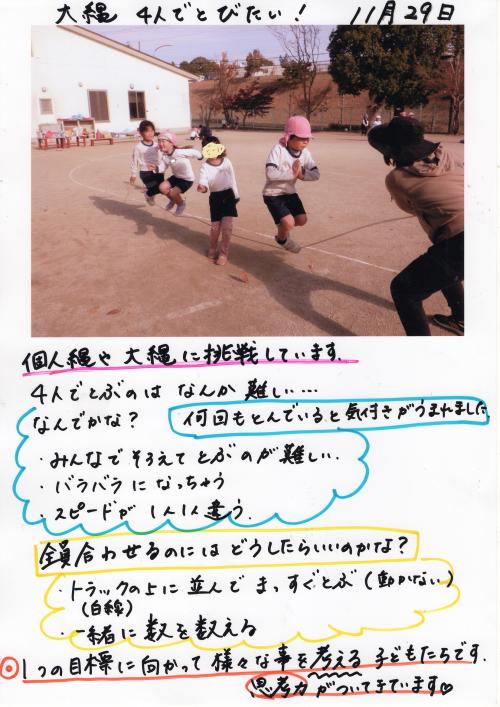 大縄 4人でとびたい! 11月29日
個人縄や大縄に挑戦しています。
4人でとぶのは なんか 難しい…
なんでかな? 何回もとんでいると気付きがうまれました
・みんなで そろえて とぶのが 難しい。
・バラバラに なっちゃう
・スピードが 1人1人違う。
全員合わせるのには どうしたらいいのかな?
・トラックの上に 並んで まっすぐとぶ(動かない)
(白線)
・一緒に 数を数える
◎1つの目標に向かって 様々な事を考える 子どもたちです。
思考力がついてきています♡